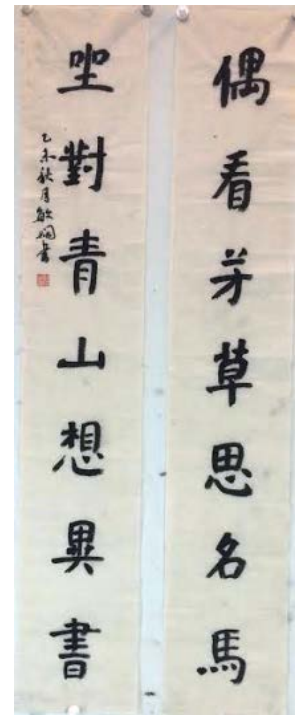 偶看芳草思名馬
坐對青山想異書
乙未秋月書